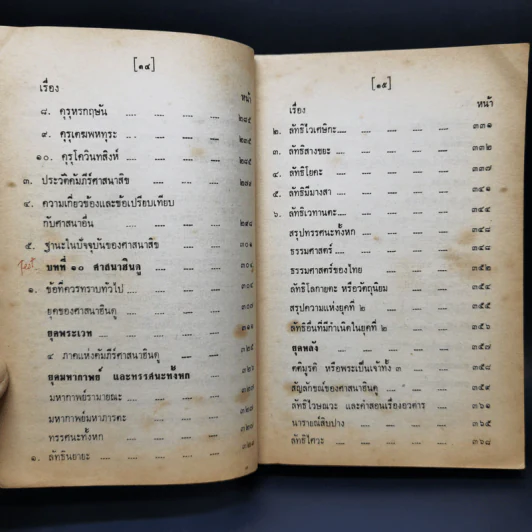 [๑๔]
เรื่อง หน้า
๘. คุรุหรกฤษัน .... .... .... ๒๘๕
๙. คุรุเตฆพหทุระ .... .... ๒๘๕
๑๐. คุรุโควินทสิงห์ .... .... .... ๒๘๕
๓. ประวัติคัมภีร์ศาสนาสิข .... .... ....
๔. ความเกี่ยวข้องและข้อเปรียบเทียบ
กับศาสนาอื่น .... .... .... ๒๙๘
๕. ฐานะในปัจจุบันของศาสนาสิข .... .... ๓๐๑
บทที่ ๑๐ ศาสนาฮินดู .... .... ....
๑. ข้อที่ควรทราบทั่วไป .... .... ....
ยุคของศาสนาฮินดู .... .... ....
ยุคพระเวท .... .... ....
๔ ภาคแห่งคัมภีร์ศาสนาฮินดู .... .... ๓๒๕
ยุคมหากาพย์ และทรรศนะทั้งหก
มหากาพย์รามายณะ .... .... ....
มหากาพย์มหาภารตะ .... .... ....
ทรรศนะทั้งหก .... .... .... ๓๒๘
๑. ลัทธินยายะ .... .... ....
[๑๕]
เรื่อง หน้า
๒. ลัทธิไวเศษิกะ.... .... .... .... ๓๓๑
๓. ลัทธิสางขยะ .... .... .... .... ๓๓๒
๔. ลัทธิโยคะ .... .... .... .... ๓๓๗
๕. ลัทธิมีมางสา .... .... .... ....
๖. ลัทธิเวทานตะ.... .... .... ....
สรุปทรรศนะทั้งหก .... .... .... ๓๔๘
ธรรมศาสตร์ .... .... .... .... ๓๔๘
ธรรมศาสตร์ของไทย .... .... .... ๓๕๒
ลัทธิโลกายตะ หรือวัตถุนิยม .... .... ๓๕๔
สรุปความแห่งยุคที่ ๒ .... .... .... ๓๕๕
ลัทธิอื่นที่มีกำเนิดในยุคที่ ๒ .... .... ....
ยุคหลัง .... .... .... .... ๓๕๗
คติมุรติ หรือพระเป็นเจ้าทั้ง ๓ .... .... ๓๕๘
สัญลักษณ์ของศาสนาฮินดู .... .... .... ๓๕๙
ลัทธิไวษณวะ และคำสอนเรื่องอวตาร .... ๓๖๑
นารายณ์สิบปาง .... .... .... ๓๖๕
ลัทธิไศวะ .... .... .... .... ๓๖๘